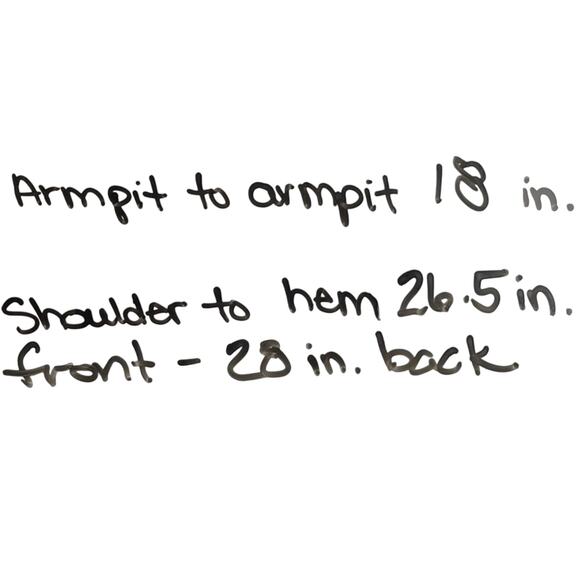 Armpit to armpit 18 in.
Shoulder to hem 26.5 in.
front - 28 in. back